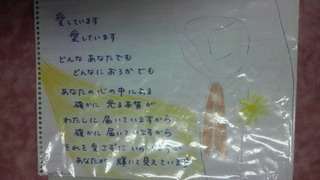 愛しています
愛しています
どんな あなたでも
どんなに おろか でも
あなたの 心の 中に ある
確かに 光る 本質 が
わたしに 届いていますから
確かに 届いていますから
それを 愛さずに いられようか
あなたが 輝いて 見えています